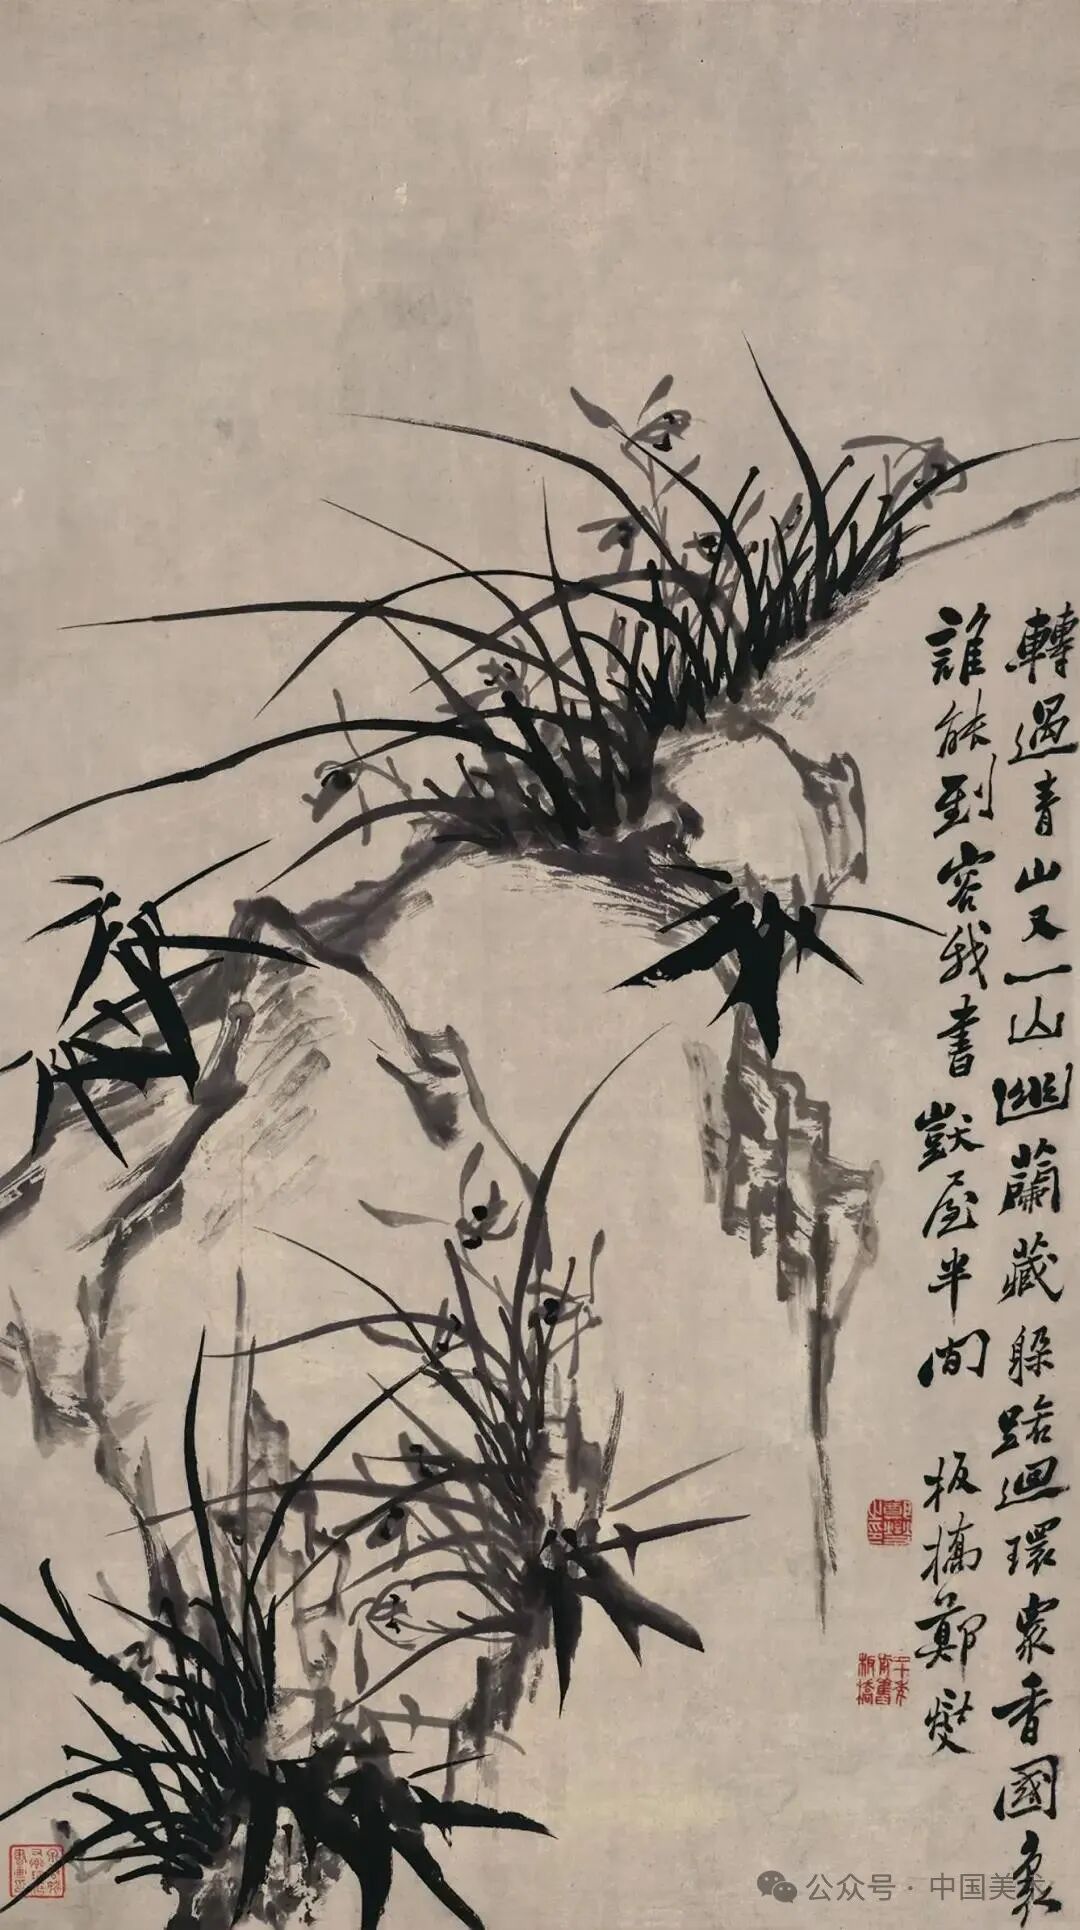 轉過青山又一山幽蘭藏躲路迴環衆香國裏
誰能到容我書獃屋半間 板橋鄭燮
二十年前舊板橋
公众号 · 中国美术